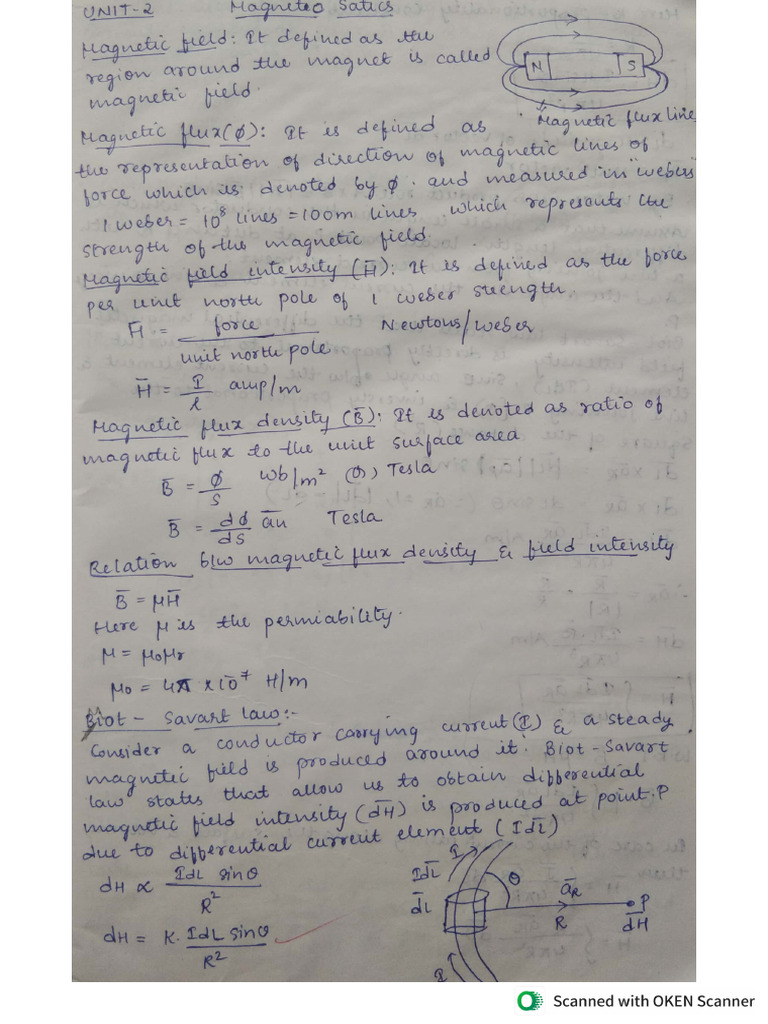 UNIT-2 Magneteo Satics
Magnetic field: It defined as the
region around the magnet is called
magnetic field.
N S
Magnetic flux lines
Magnetic flux(ϕ): It is defined as
the representation of direction of magnetic lines of
force which is denoted by ϕ. and measured in "webers"
1 weber = 10⁸ lines = 100m lines which represents the
strength of the magnetic field.
Magnetic field intensity (H̄): It is defined as the force
per unit north pole of 1 weber strength.
H̄ = force / unit north pole Newtons/weber
H̄ = I/l amp/m
Magnetic flux density (B̄): It is denoted as ratio of
magnetic flux to the unit surface area
B̄ = ϕ/s wb/m² (or) Tesla
B̄ = dϕ/ds ān Tesla
Relation b/w magnetic flux density & field intensity
B̄ = μH̄
Here μ is the permiability.
μ = μ₀μr
μ₀ = 4π × 10⁻⁷ H/m
Biot - Savart law:-
Consider a conductor carrying current (I) & a steady
magnetic field is produced around it. Biot-Savart
law states that allow us to obtain differential
magnetic field intensity (dH̄) is produced at point P
due to differential current element (IdL̄)
dH ∝ IdL sinθ / R²
dH = K. IdL sinθ / R²
I
IdL̄
dL̄
θ
āR
R
P
dH̄
I
Scanned with OKEN Scanner